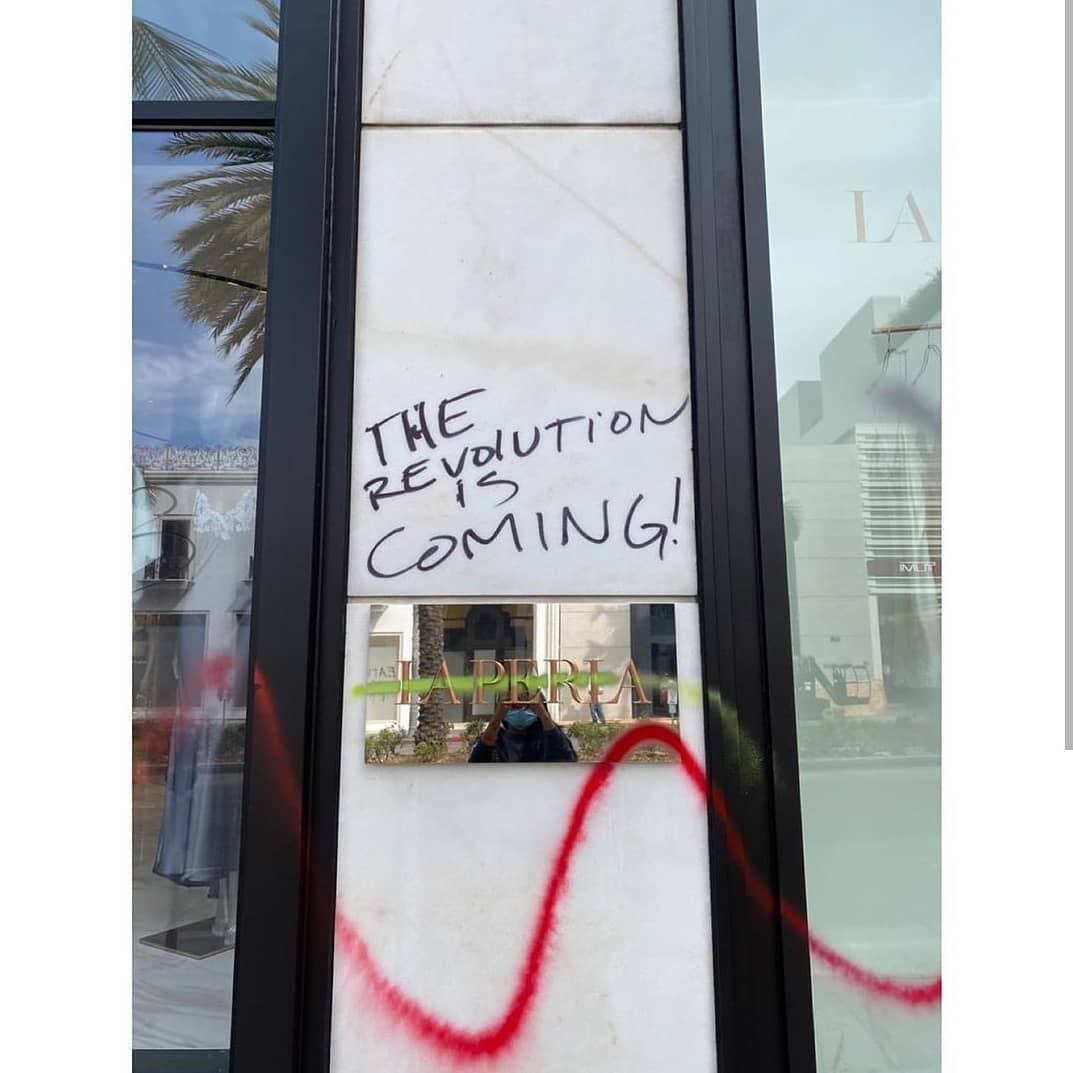 LA
THE
REVOLUTION
IS
COMING!
LA PERLA